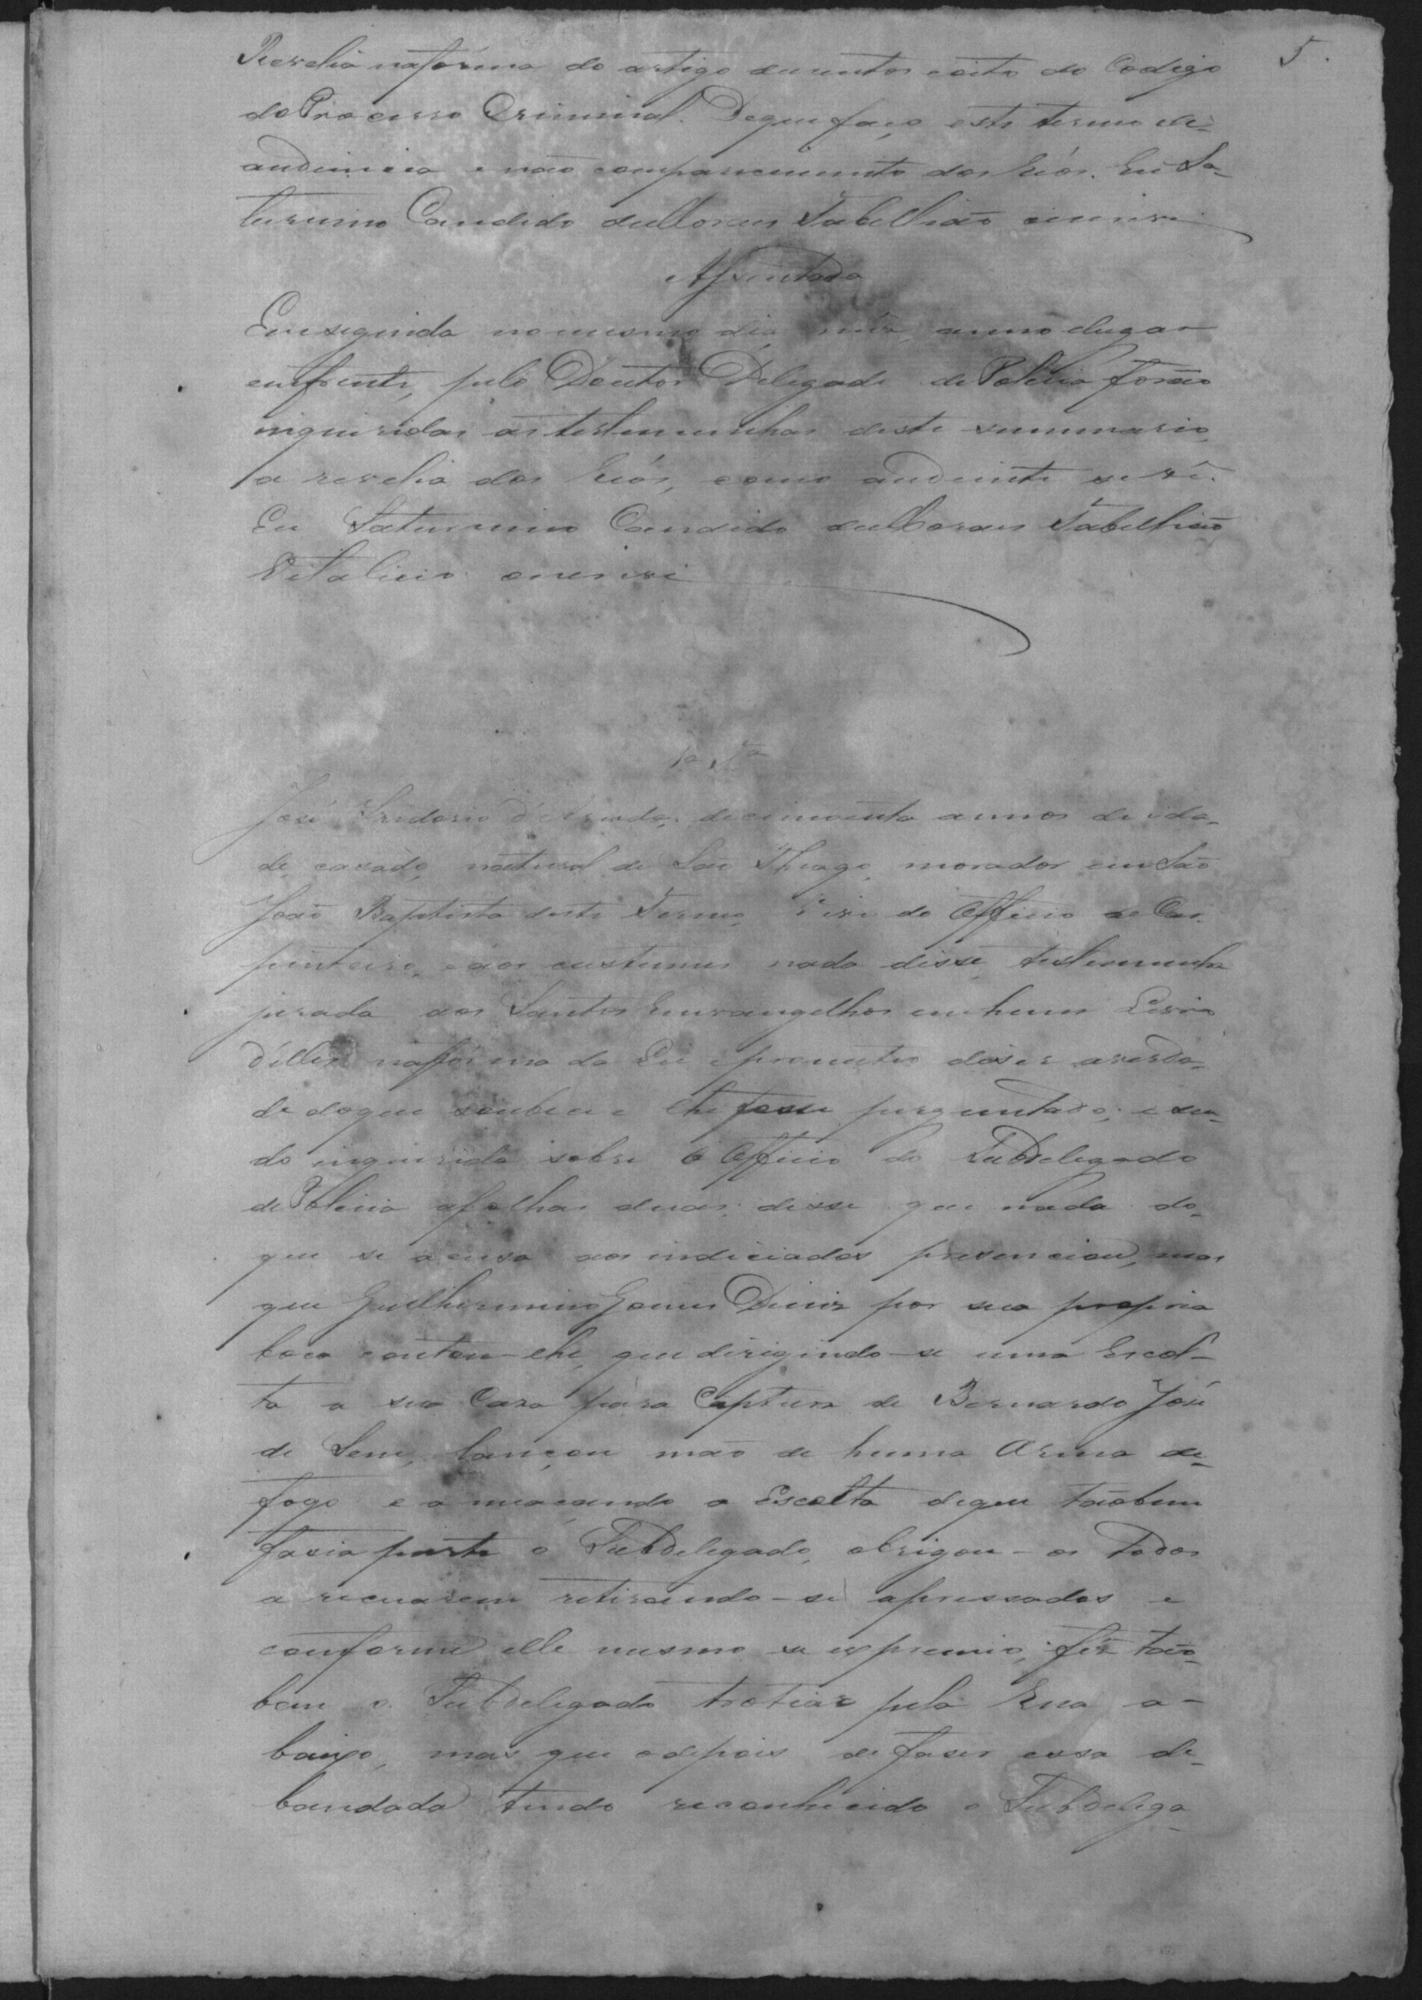 5.
Revelia na fórma do artigo dusentos e oito do Codigo
do Processo Criminal. De que faço este termo de
audiencia e não comparecimento dos Réos. Eu Sa-
turnino Candido de Moraes Tabellião escrevi
Assentada
Em seguida no mesmo dia, mês, anno e lugar
em frente, pelo Doutor Delegado de Policia forão
inqueridas as testemunhas deste summario,
a revelia dos Réos, como audiente se vê.
Eu Saturnino Candido de Moraes Tabellião
Vitalicio escrevi
1ª Tª
José de cincoenta annos de ida-
de, casado, natural de São Thiago, morador em São
João Baptista deste Termo, vive do Officio de Car-
pinteiro, e aos custumes nada disse, testemunha
jurada aos Santos Euvangelhos em hum Livro
d'elles na fórma da Lei e prometeo diser a verda-
de do que soubece e lhe fosse perguntado; e sen-
do inquerido sobre o Officio do Subdelegado
de Policia a folhas duas: disse que nada do
que se acusa aos indiciados presenciou, mas
que Guilhermino Gomes Diniz por sua propria
boca contou-lhe, que dirigindo-se uma Escol-
ta a sua Casa para Captura de Bernardo José
de Sene, lançou mão de huma Arma de
fogo e ameaçando a Escolta de que tãobem
fasia parte o Subdelegado, obrigou-os todos
a recuarem retirando-se apressados e
conforme elle mesmo se expremio, fêz tão-
bem o Subdelegado trotiar pela Rua a-
baixo, mas que depois de faser essa de-
bandada tendo reconhecido o Subdelega-